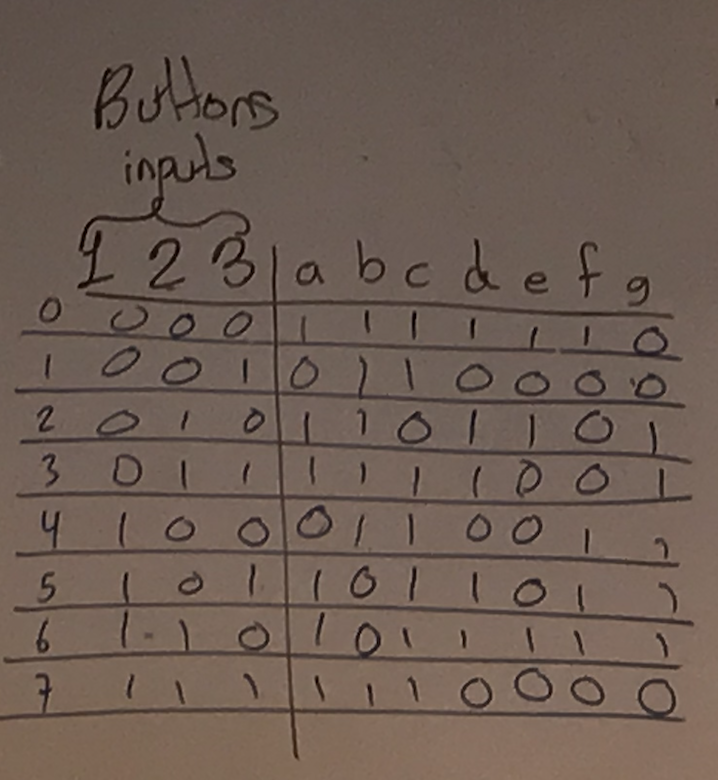 Buttons
inputs
1 2 3 a b c d e f g
0 0 0 0 1 1 1 1 1 1 0
1 0 0 1 0 1 1 0 0 0 0
2 0 1 0 1 1 0 1 1 0 1
3 0 1 1 1 1 1 1 0 0 1
4 1 0 0 0 1 1 0 0 1 1
5 1 0 1 1 0 1 1 0 1 1
6 1 1 0 1 0 1 1 1 1 1
7 1 1 1 1 1 1 0 0 0 0